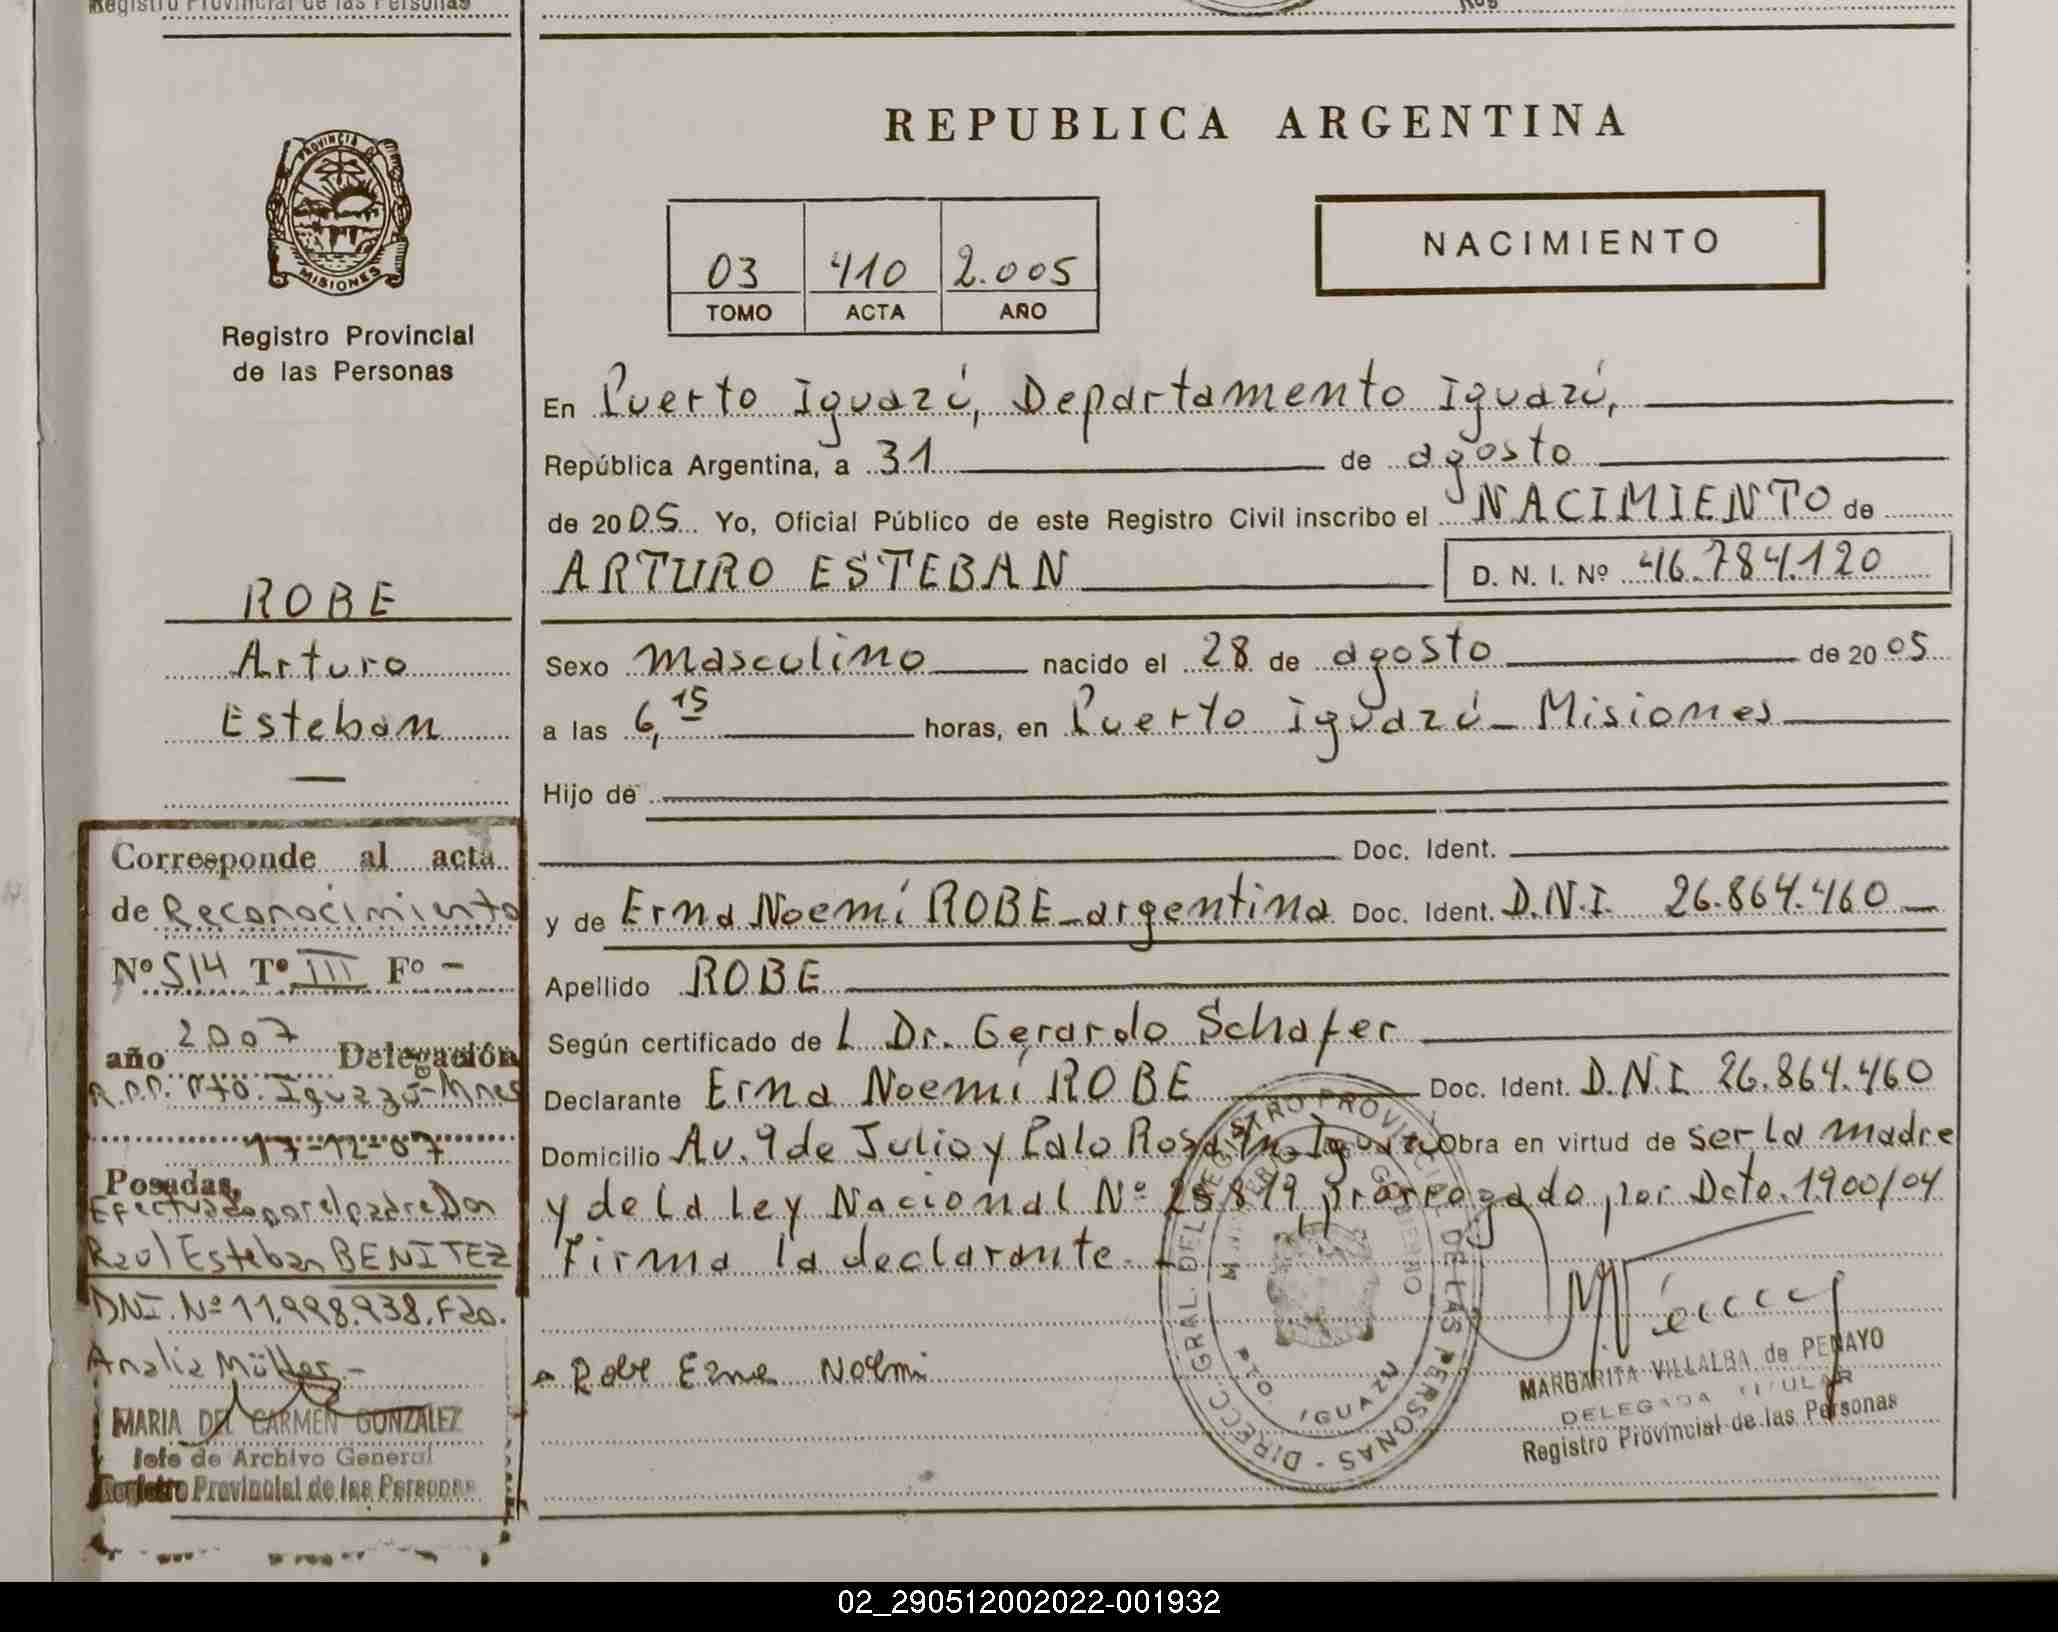 Registro Provincial de las Personas
REPUBLICA ARGENTINA
PROVINCIA DE
MISIONES
Registro Provincial
de las Personas
03 410 2.005
TOMO ACTA AÑO
NACIMIENTO
En Puerto Iguazú, Departamento Iguazú,
República Argentina, a 31 de agosto
de 2005 Yo, Oficial Público de este Registro Civil inscribo el NACIMIENTO de
ARTURO ESTEBAN D. N. I. Nº 46.784.120
Sexo masculino nacido el 28 de agosto de 2005
a las 6,15 horas, en Puerto Iguazú - Misiones
Hijo de
Doc. Ident.
y de Erna Noemí ROBE - argentina Doc. Ident. D.N.I. 26.864.460
Apellido ROBE
Según certificado de L Dr. Gerardo Schafer
Declarante Erna Noemí ROBE Doc. Ident. D.N.I. 26.864.460
Domicilio Av. 9 de Julio y Palo Rosa Iguazú Obra en virtud de ser la madre
y de la Ley Nacional Nº 25.819, prorrogado por Dcto. 1900/04
Firma la declarante.
Robe Erna Noemi
DIRECC. GRAL. DEL REGISTRO PROVINCIAL DE LAS PERSONAS
PTO. IGUAZU
MARGARITA VILLALBA de PENAYO
DELEGADA TITULAR
Registro Provincial de las Personas
ROBE
Arturo
Esteban
Corresponde al acta
de Reconocimiento
Nº 514 Tº III Fº -
año 2007 Delegación
R.P.P. Pto. Iguazú - Mnes
17-12-07
Posadas,
Efectuado por el padre Don
Raul Esteban BENITEZ
DNI. Nº 11.998.938. Fdo.
Analia Müller -
MARIA DEL CARMEN GONZALEZ
Jefe de Archivo General
Registro Provincial de las Personas
02_290512002022-001932